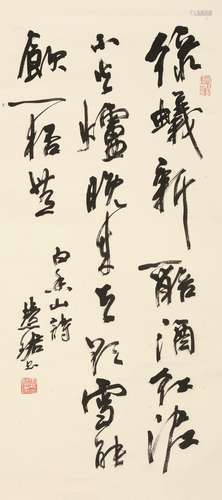 綠蟻新醅酒紅泥
小火爐晚來天欲雪能
飲一桮無
白香山詩
慧珺書